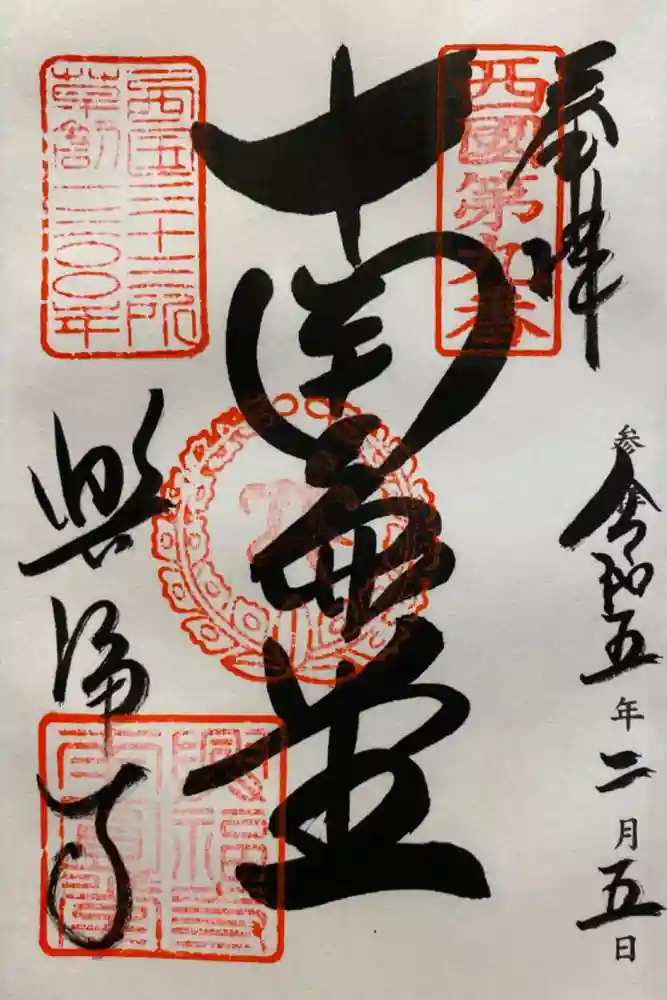 奉拝
西國第九番
令和五年二月五日
南圓堂
西国三十三所
草創一三〇〇年
興福寺
興福寺
南圓堂